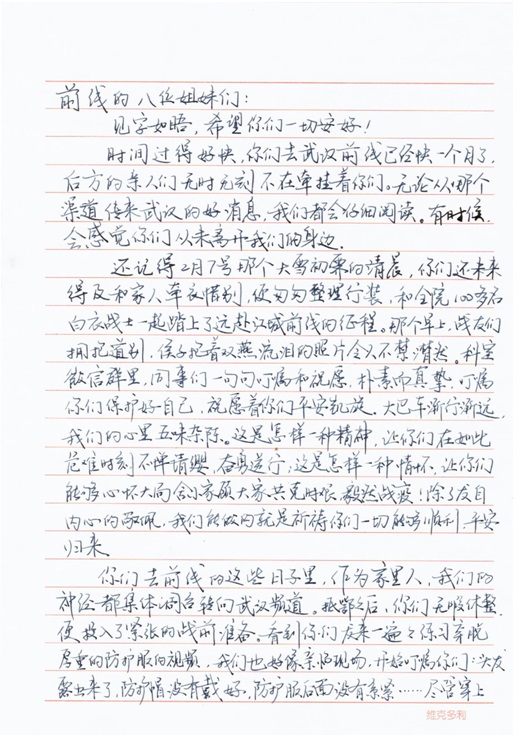 前线的八位姐妹们：
见字如晤，希望你们一切安好！
时间过得好快，你们去武汉前线已经快一个月了，
后方的亲人们无时无刻不在牵挂着你们。无论从哪个
渠道传来武汉的好消息，我们都会仔细阅读。有时候
会感觉你们从未离开我们的身边。
还记得2月7号那个大雪初霁的清晨，你们还未来
得及和家人牵衣惜别，便匆匆整理行装，和全院100多名
白衣战士一起踏上了远赴江城前线的征程。那个早上，战友们
拥抱道别，侯子抱着双燕流泪的照片令人不禁潸然。科室
微信群里，同事们一句句叮嘱和祝愿，朴素而真挚。叮嘱
你们保护好自己，祝愿着你们平安凯旋。大巴车渐行渐远，
我们的心里五味杂陈。这是怎样一种精神，让你们在如此
危难时刻不惮请缨，奋勇逆行；这是怎样一种情怀，让你们
能够心怀大局舍小家顾大家共克时艰，毅然战疫！除了发自
内心的敬佩，我们能做的就是祈祷你们一切能够顺利，平安
归来。
你们去前线的这些日子里，作为家里人，我们的
神经都集体调台转向武汉频道。抵鄂之后，你们无暇休整，
便投入了紧张的战前准备。看到你们发来一遍遍练习穿脱
厚重的防护服的视频，我们也好像亲临现场，开始叮嘱你们：头发
露出来了，防护帽没有戴好，防护服后面没有系紧……尽管穿上
维克多利